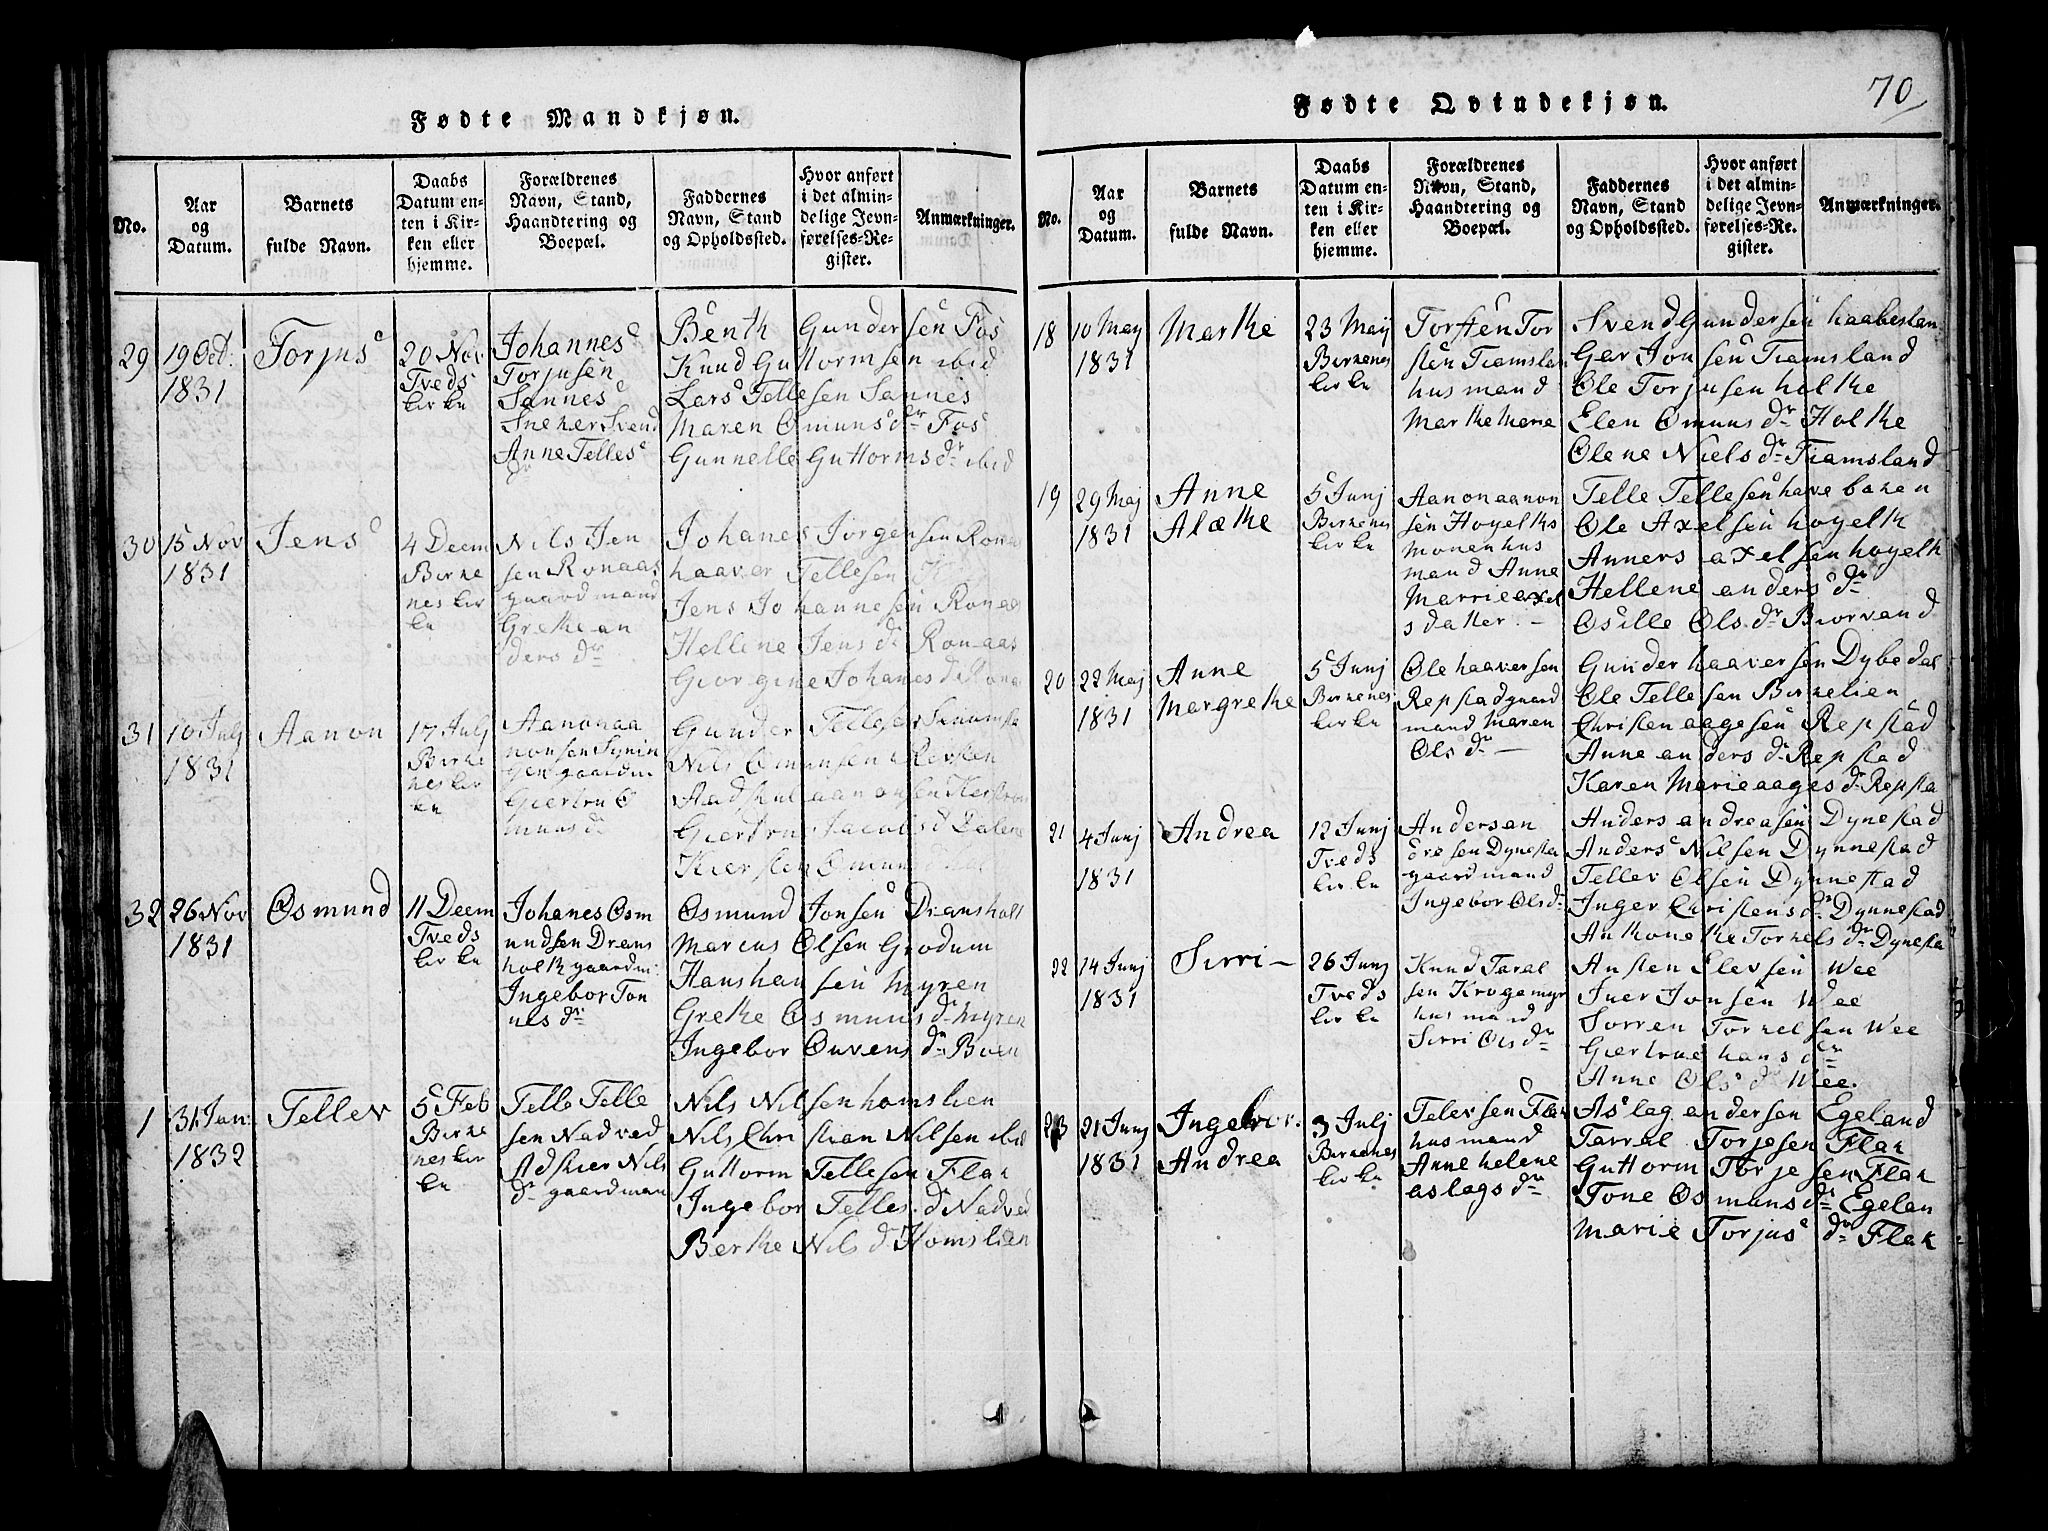 Fødte Mandkjøn.
No.
Aar
og
Datum.
Barnets
fulde Navn.
Daabs
Datum en-
ten i Kir-
ken eller
hjemme.
Forældrenes
Navn, Stand,
Haandtering og
Boepæl.
Faddernes
Navn, Stand
og Opholdssted.
Hvor anført
i det almin-
delige Jevn-
førelses-Re-
gister.
Anmærkninger.
29
19 Oct:
1831
Torjus
20 Nov
Tveds
kirke
Johannes
Torjusen
Sannes
Sneker Svend
Anne Telles
dr
Benth Gundersen Fos
Knud Guttormsen ibid
Lars Tellesen Sannes
Maren Omunsdr Fos
Gunnelle Guttormsdr ibid
30
15 Nov
1831
Jens
4 Deem
Birke
nes kir
ke
Nils Jen
sen Ronaas
gaardmand
Grethe an
ders dr
Johanes Jørgensen Ronaas
haaver Tellesen
Jens Johannesen Ronaas
Hellene Jensdr Ronaas
Giorgine Johanesdr Ronas
31
10 Julj
1831
Aanon
17 Julj
Birke
nes kir
ke
Aanon aa
nonsen
gaardm
Giertru O
munsdr
Gunder Tellefsen
Nils Omunsen
aanonsen
Giertru Jacobsd Dalene
Kiersten Omun
32
26 Nov
1831
Osmund
11 Deem
Tveds
kirke
Johanes Osm
undsen Drans
holt gaardm:
Ingebor Ton
nes dr
Osmund Jonsen Dransholt
Marcus Olsen Grødum
Hans hansen Myren
Grethe Osmunsdr Myren
Ingebor Ouvensdr Buen
1
31 Jan:
1832
Tellev
5 Feb
Birke
nes kir
ke
Telle Telle
sen Nadved
Adskier Nils
dr gaardman
Nils Nilsen homslien
Nils Christian Nilsen ibid
Guttorm Tellesen Flak
Ingebor Tellesd Nadved
Berthe Nilsd Homslien
Fødte Qvindekjøn.
70
No.
Aar
og
Datum.
Barnets
fulde Navn.
Daabs
Datum en-
ten i Kir-
ken eller
hjemme.
Forældrenes
Navn, Stand,
Haandtering og
Boepæl.
Faddernes
Navn, Stand
og Opholdssted.
Hvor anført
i det almin-
delige Jevn-
førelses-Re-
gister.
Anmærkninger.
18
10 May
1831
Marthe
23 Maij
Birkenes
kirke
Torsten Tor
sten Tiamslan
husmand
Marthe Marie
Svend Gundersen haabeslan
Ger Jonsen Tiamsland
Ole Torjusen holthe
Elen Omunsdr Holthe
Olene Nielsdr Tiamsland
19
29 Maj
1831
Anne
Alæthe
5 Junj
Birkenes
kirke
Aanon aanon
sen Hoyelths
monen hus
mand Anne
Marrie axel
sdatter. –
Telle Tellesen have baken
Ole Axelsen hoyelth
Anners axelsen hoyelth
Hellene anders dr
Osille Olsdr Biorvand
20
22 Maj
1831
Anne
Margrethe
5 Junj
Birkenes
kirke
Ole haaversen
Repstad gaard
mand Maren
Olsdr –
Gunder haaversen Dybedal
Ole Tellesen Birkelien
Christen aagesen Repstad
Anne andersdr Repstad
Karen Marie aagesdr Repsta
21
4 Junj
1831
Andrea
12 Junj
Tveds
kirke
Anders an
dresen Dynesta
gaardmand
Ingebor Olsdr
Anders andreasen Dynestad
Anders Nilsen Dynnestad
Tellev Olsen Dynnestad
Inger Christensdr Dynnestad
Anthonethe Torkelsdr Dynesta
22
14 Junj
1831
Sirri –
26 Junj
Tveds
kirke
Knud Taral
sen Krogemyr
husmand
Sirri Olsdr
Austen Elevsen Wee
Iver Jonsen Wee
Sorren Torkelsen Wee
Giertrue hansdr
Anne Olsdr Wee.
23
21 Junj
1831
Ingebor.
Andrea
3 Julj
Birkenes
kirke
Televsen Flak
husmand
Anne helene
aslagsdr
Aslag andersen Egeland
Tarral Torjesen Flak
Guttorm Torjesen Flak
Tone Osmunsdr Egelan
Marie Torjusdr Flak